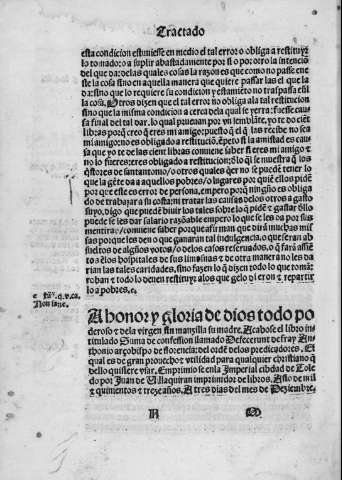 Tractado
esta condicion estuuiesse en medio el tal error o obliga a restituyr
lo tomado: o a suplir abastadamente por si o por otro la intenció
del que da: delas quales cosas la razon es que como no passe ene
ste la cosa sino en aquella manera que quiere passar las el que la
da: sino que lo requiere su condicion y estamiéto no traspassa ési
la cosa. Otros dizen que el tal error no obliga ala tal restitucion
sino que la misma condicion a cerca dela qual se yerra: fuesse cau
sa final del tal dar. lo qual puso man por vn séblāte. yo te do ciét
libras porq̄ creo q̄ eres mi amigo: puesto q̄ el q̄ las recibe no sea
mi amigo: no es obligado a restitució. é pero si la amistad es cau
sa que yo te de las cient libras conuiene saber si eres mi amigo: é
no lo fueres: eres obligado a restitucion: é lo q̄l se muestra é los
q̄stores de santantonio/o otros quales q̄er no se puedé tener lo
que la géte da a aquellos pobres/o lugares por quié ellos pidé
por que este es error de persona, empero porq̄ ningūo es obliga
do de trabajar a su costa: ni tratar las causas delos otros a gasto
suyo, digo que puedé biuir los tales sobre lo q̄ pidé é gastar é llo
puede se les dar salario razōable empero lo que se les da por sus
mentiras/conuiene saber porque afirman que dirá muchas mis
sas por que les den o que ganaran tal indulgencia, o que serán ab
sueltos de algūos votos/o delos casos reseruados, o q̄ fará assié
to é los hospitales de sus limosnas é de otra manera no les da
rian las tales caridades, sino fazen lo q̄ dizen todo lo que romā
roban é todo lo deuen restituyr alos que gelo dieron é repartir
lo a pobres.
Non sane.
A honor y gloria de dios todo po
deroso é dela virgen sin manzilla su madre. Acabose el libro in
titulado Suma de confession llamado Defecerunt de fray An
thonio arçobispo de florencia: del ordé delos predicadores. El
qual es de gran prouecho é vtilidad para qualquier christiano q̄
dello quisiere vsar. Emprimio se enla Imperial cibdad de Tole
do por Juan de Villaquiran imprimidor de libros. Año de mil
é quinientos é treze años. A tres dias del mes de Deziembre.